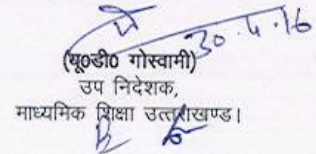 30.4.16
(यू०डी० गोस्वामी)
उप निदेशक,
माध्यमिक शिक्षा उत्तराखण्ड।